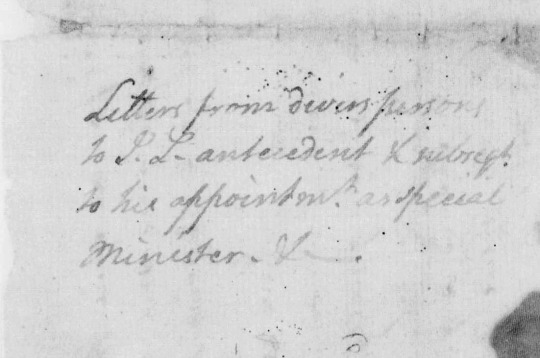 Letters from divers persons
to P. L- antecedent & subseqt.
to his appointmt. as special
Minister. &